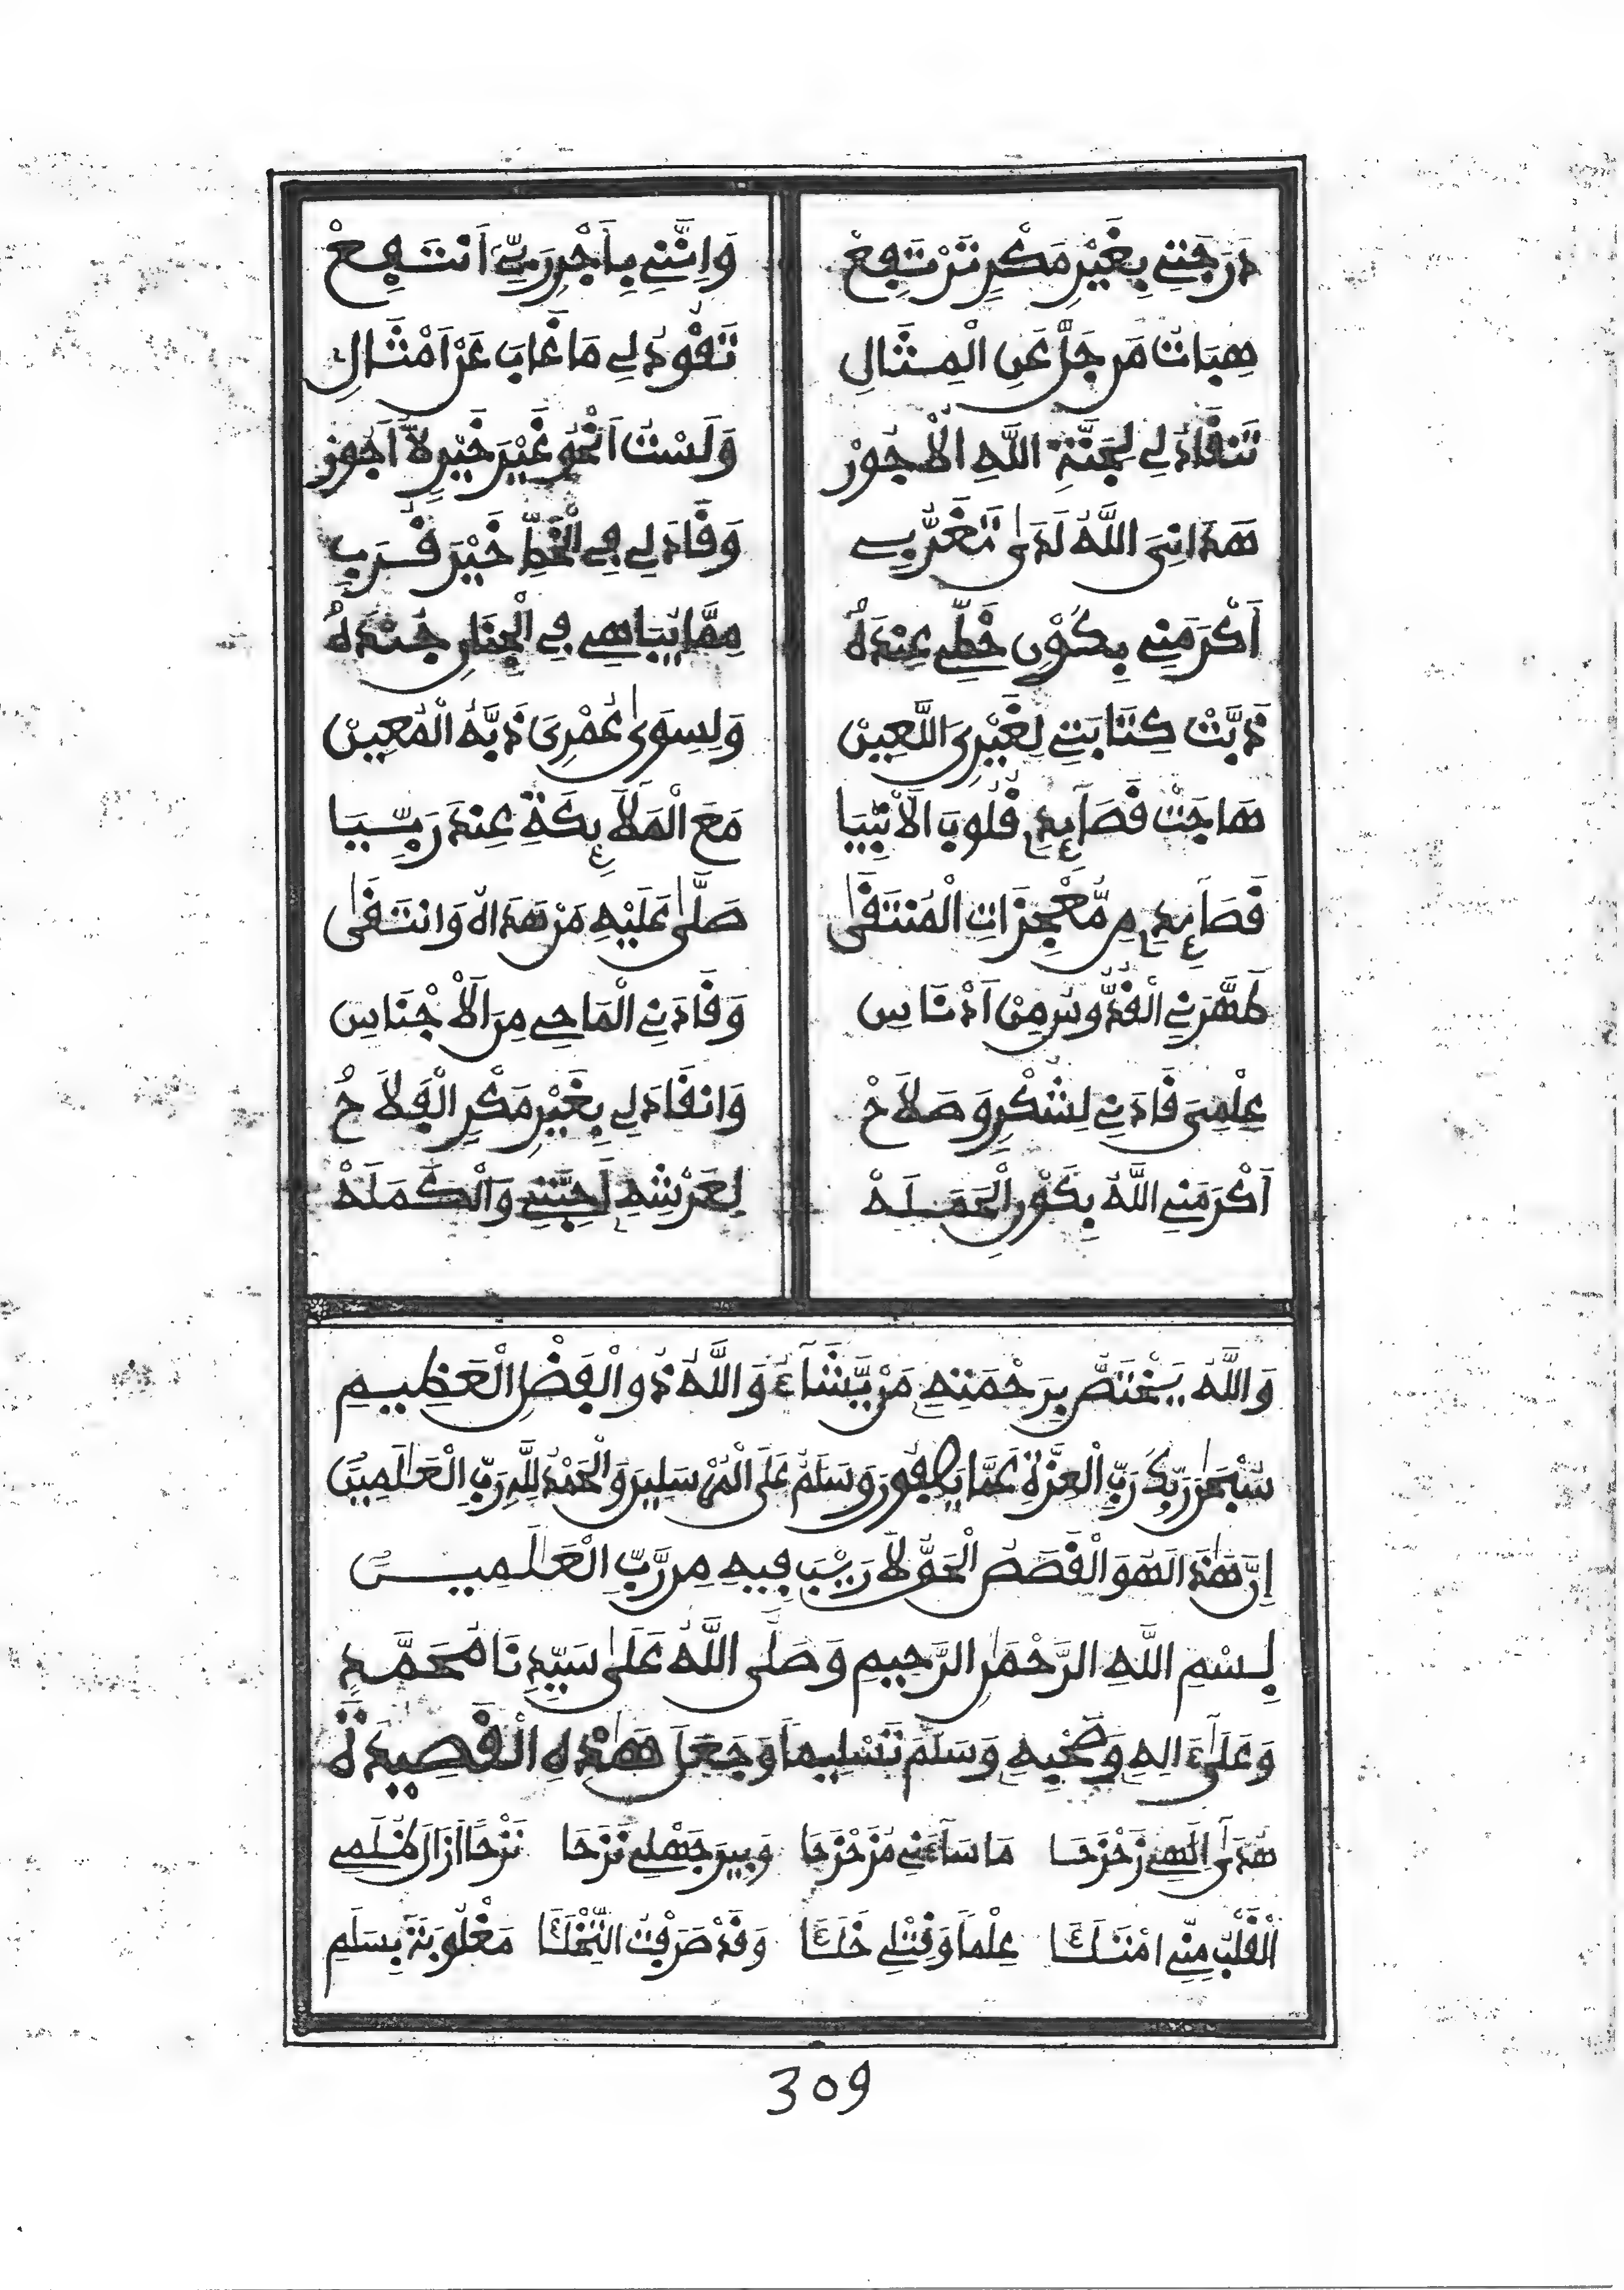 دَرَجَتِي بِغَيْرِ مَكْرٍ تَرْتَفِعْ وَإِنَّنِي بِأَجْرِ رَبِّي أَنْتَفِعْ
هِبَاتُ مَن جَلَّ عَنِ الْمِثَالِ تَقُودُ لِي مَا غَابَ عَنْ أَمْثَالِ
تَنقَادُ لِي لِجَنَّةِ اللَّهِ الْأُجُورْ وَلَسْتُ أَنْحُو غَيْرَ خَيْرٍ لَا أَجُورْ
هَدَانِيَ اللَّهُ لَدَى تَغَرُّبِي وَقَادَ لِي فِي الْخَطِّ خَيْرَ قُرَبِ
أَكْرَمَنِي بِكَوْنِ خَطِّي عِندَهُ مِمَّا يُبَاهِي فِي الْجِنَانِ جُنْدَهُ
ذَبَّتْ كِتَابَتِي لِغَيْرِيَ اللَّعِينْ وَلِسِوَى عُمْرِيَ ذَبَّهُ الْمُعِينْ
هَاجَتْ قَصَائِدِي قُلُوبَ الْأَنْبِيَا مَعَ الْمَلَائِكَةِ عِندَ رَبِّيَا
قَصَائِدِي مِن مُّعْجِزَاتِ الْمُنتَقَى صَلَّى عَلَيْهِ مَنْ هَدَاهُ وَانتَقَى
طَهَّرَنِي الْقُدُّوسُ مِنْ أَدْنَاسِ وَقَادَنِي الْمَاحِي مِنَ الْأَجْنَاسِ
عِلْمِيَ قَادَنِي لِشُكْرٍ وَصَلَاحْ وَانقَادَ لِي بِغَيْرِ مَكْرٍ الْفَلَاحْ
أَكْرَمَنِي اللَّهُ بِكَوْنِ الْحَمَلَهْ لِعَرْشِهِ أَحِبَّتِي وَالْكَمَلَهْ
وَاللَّهُ يَخْتَصُّ بِرَحْمَتِهِ مَنْ يَّشَاءُ وَاللَّهُ ذُو الْفَضْلِ الْعَظِيمِ
سُبْحَٰنَ رَبِّكَ رَبِّ الْعِزَّةِ عَمَّا يَصِفُونَ وَسَلَٰمٌ عَلَى الْمُرْسَلِينَ وَالْحَمْدُ لِلَّهِ رَبِّ الْعَٰلَمِينَ
إِنَّ هَٰذَا لَهُوَ الْقَصَصُ الْحَقُّ لَا رَيْبَ فِيهِ مِن رَّبِّ الْعَٰلَمِينَ
بِسْمِ اللَّهِ الرَّحْمَٰنِ الرَّحِيمِ وَصَلَّى اللَّهُ عَلَى سَيِّدِنَا مُحَمَّدٍ
وَعَلَى ءَالِهِ وَصَحْبِهِ وَسَلَّمَ تَسْلِيماً وَجَعَلَ هَٰذِهِ الْقَصِيدَةَ
هُدَى إِلَهِي زَحْزَحَا مَا سَاءَنِي مُزَحْزَحَا وَبِيرَ جَهْلِي نَزَحَا نَزْحًا أَزَالَ ظُلَمِي
الْقَلْبُ مِنِّي امْتَلَأَ عِلْماً وَفِتْلِي خَلَأَ وَقَدْ صَرَفْتُ مَغْلُوبَةً بِسَلَمِ
309